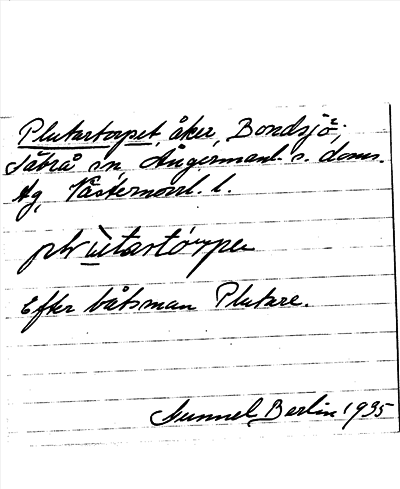 Plutartorpet, åker, Bondsjö,
Säbrå sn, Ångermanl. s. doms.
ag, Västernorrl. l.
Efter båtsman Plutare.
Nunnel Berlin 1935